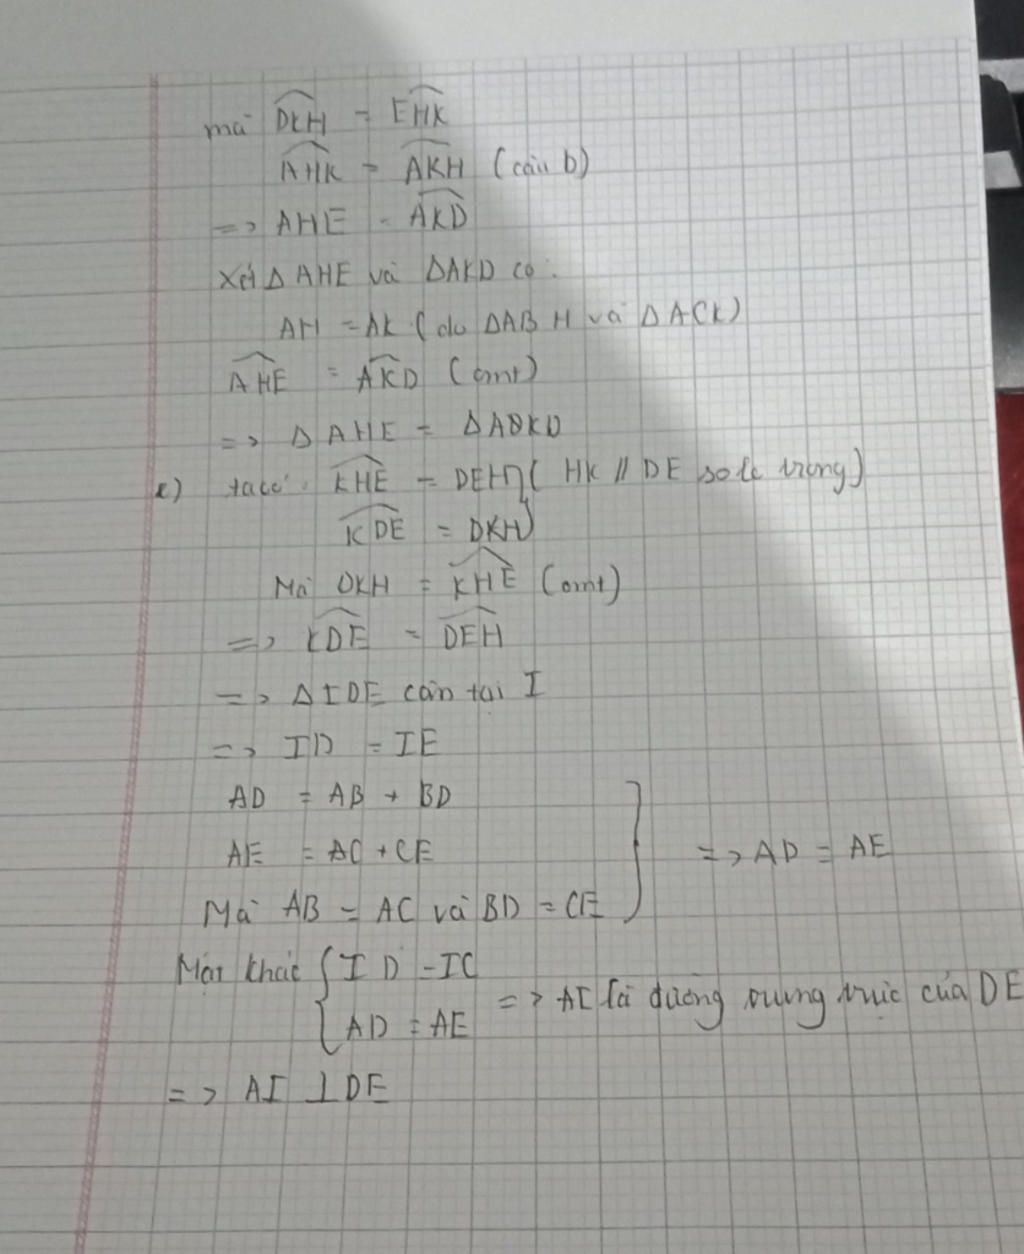 mà DKH = EHK
AHK = AKH (câu b)
=> AHE = AKD
Xét Δ AHE và ΔAKD có:
AH = AK (do ΔABH và ΔACK)
AHE = AKD (cmt)
=> Δ AHE = Δ AKD
e) ta có: KHE = DEH ( HK // DE so le trong)
KDE = DKH
Mà DKH = KHE (cmt)
=> KDE = DEH
=> Δ IDE cân tại I
=> ID = IE
AD = AB + BD
AE = AC + CE => AD = AE
Mà AB = AC và BD = CE
Mặt khác { ID = IC
AD = AE => AI là đường trung trực của DE
=> AI ⊥ DE